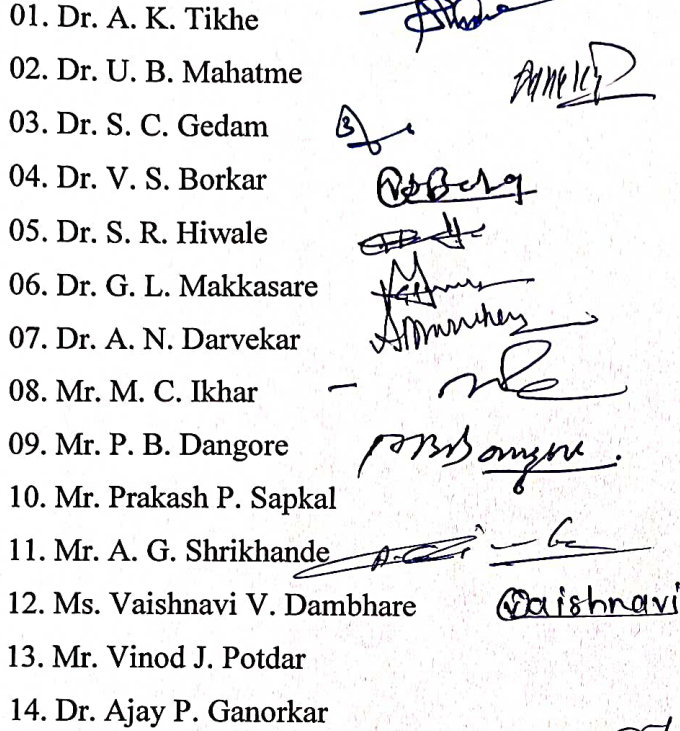 01. Dr. A. K. Tikhe
02. Dr. U. B. Mahatme
03. Dr. S. C. Gedam
04. Dr. V. S. Borkar
05. Dr. S. R. Hiwale
06. Dr. G. L. Makkasare
07. Dr. A. N. Darvekar
08. Mr. M. C. Ikhar
09. Mr. P. B. Dangore
10. Mr. Prakash P. Sapkal
11. Mr. A. G. Shrikhande
12. Ms. Vaishnavi V. Dambhare Vaishnavi
13. Mr. Vinod J. Potdar
14. Dr. Ajay P. Ganorkar